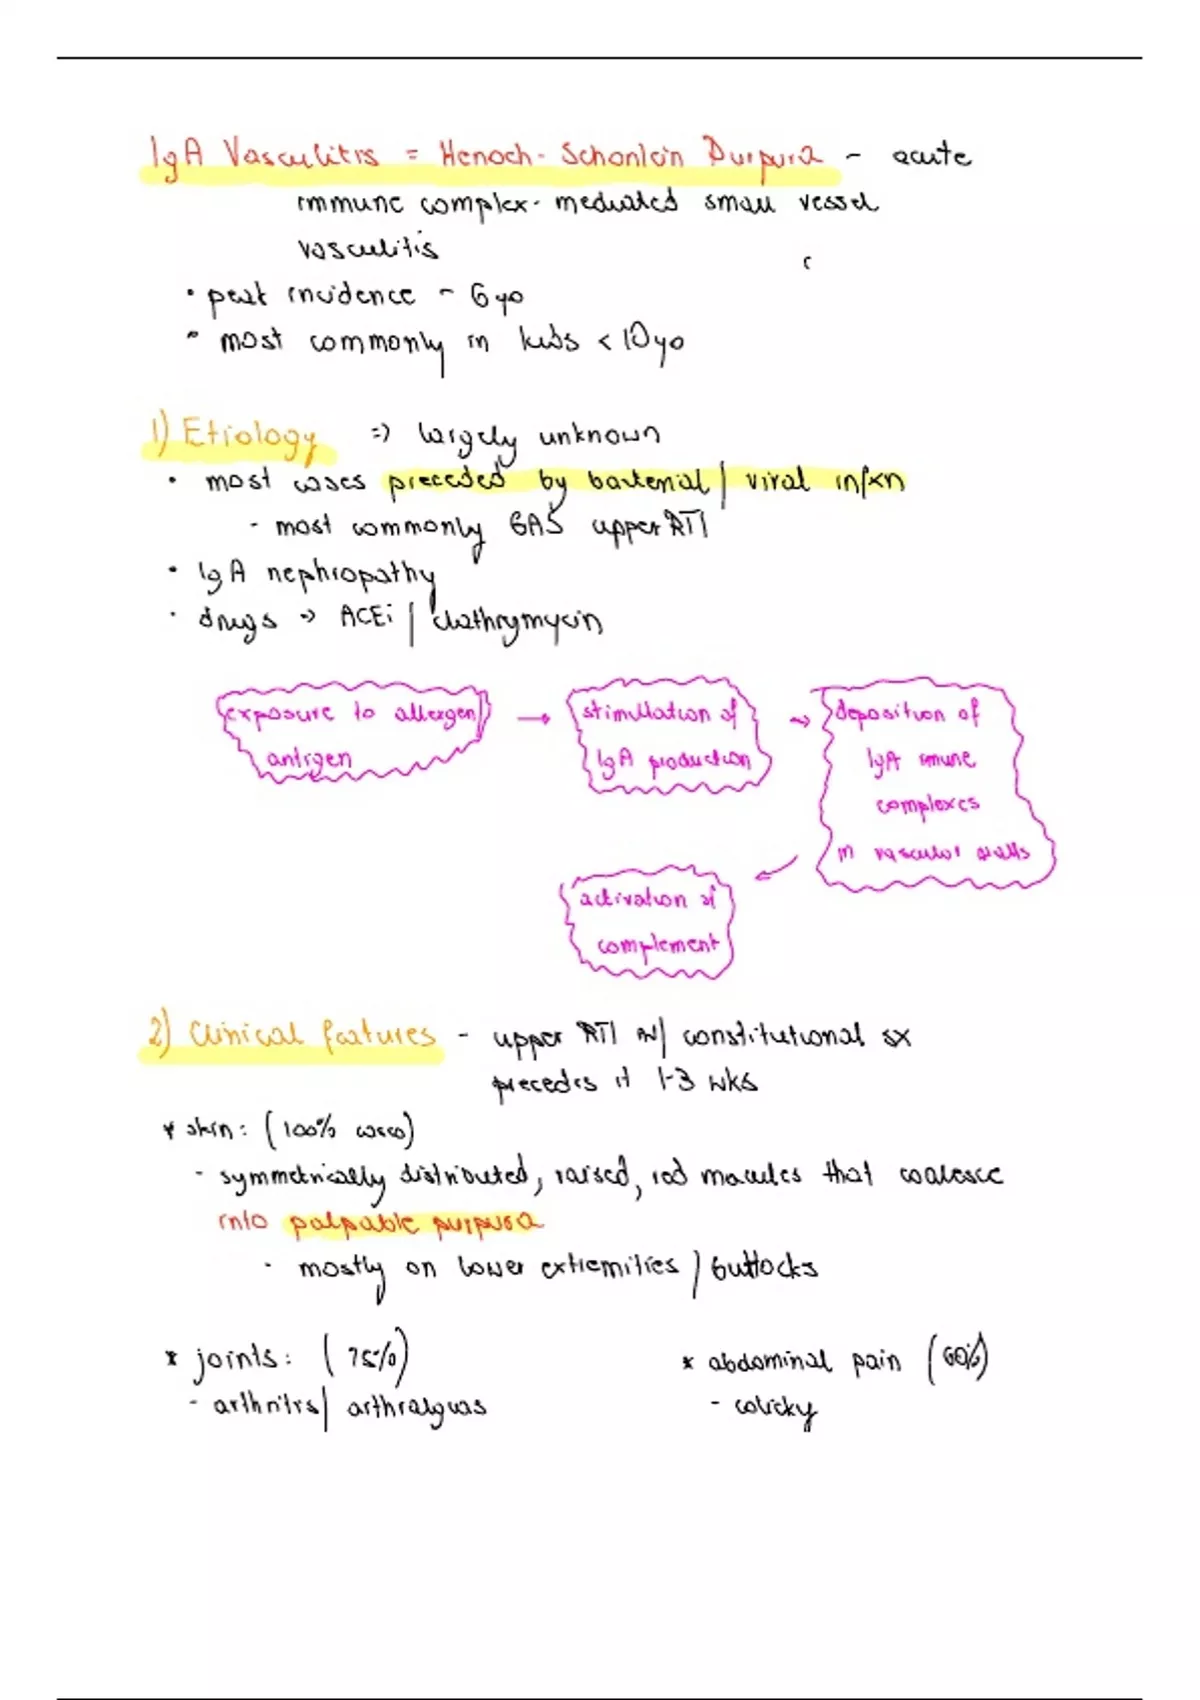 IgA Vasculitis = Henoch-Schonlein Purpura - acute
immune complex-mediated small vessel
vasculitis
• peak incidence ~ 6yo
• most commonly in kids < 10yo
1) Etiology => largely unknown
• most cases preceded by bacterial / viral infxn
- most commonly GAS upper RTI
• IgA nephropathy
• drugs → ACEi / clathrymycin
exposure to allergen/
antigen
→ stimullation of
IgA production
→ deposition of
IgA imune
complexes
in vascular walls
activation of
complement
2) Clinical features - upper RTI w/ constitutional sx
precedes it 1-3 wks
* skin: (100% cases)
- symmetrically distributed, raised, red macules that coalesce
into palpable purpura
• mostly on lower extremities / buttocks
* joints: (75%)
- arthritis/ arthralgias
* abdominal pain (60%)
- colicky